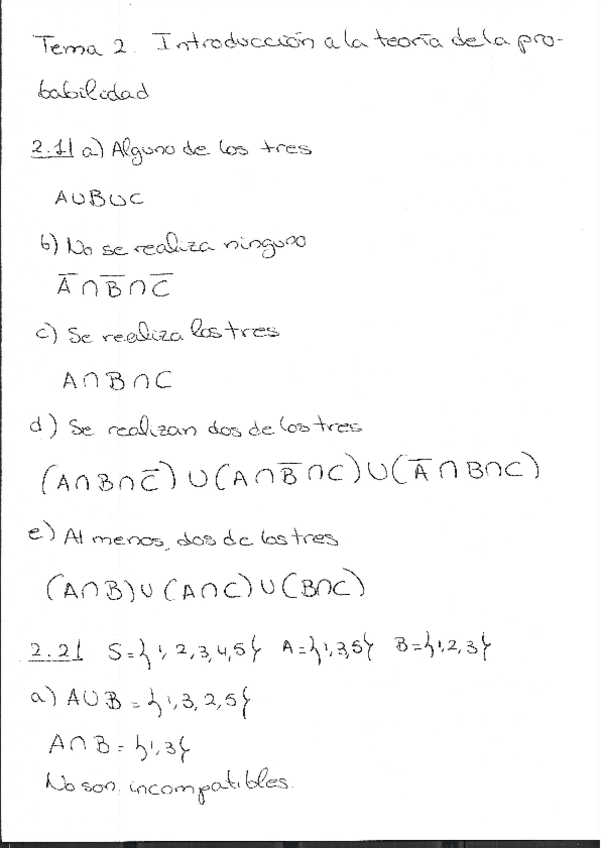 Tema 2. Introducción a la teoría de la pro-
babilidad
2.1| a) Alguno de los tres
A∪B∪C
b) No se realiza ninguno
A̅ ∩ B̅ ∩ C̅
c) Se realiza los tres
A ∩ B ∩ C
d) Se realizan dos de los tres
(A∩B∩C̅) ∪ (A∩B̅∩C) ∪ (A̅∩B∩C)
e) Al menos dos de los tres
(A∩B) ∪ (A∩C) ∪ (B∩C)
2.2| S={1,2,3,4,5} A={1,3,5} B={1,2,3}
a) A∪B = {1,3,2,5}
A∩B = {1,3}
No son incompatibles.